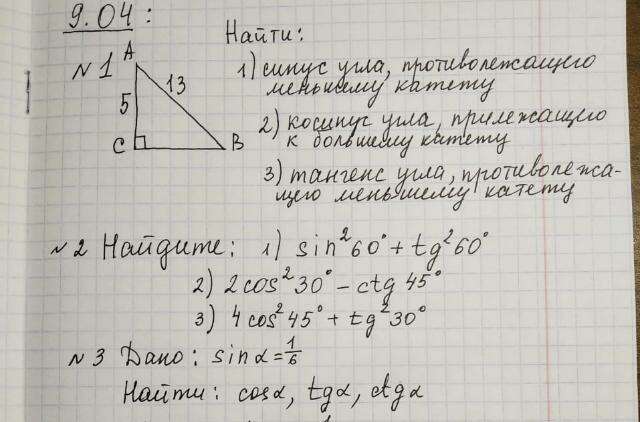 9.04:
Найти:
№1
A
13
5
C
B
1) синус угла, противолежащего
меньшему катету
2) косинус угла, прилежащего
к большему катету
3) тангенс угла, противолежа-
щего меньшему катету
№2 Найдите: 1) sin²60° + tg²60°
2) 2cos²30° - ctg 45°
3) 4cos²45° + tg²30°
№3 Дано: sinα = 1/6
Найти: cosα, tgα, ctgα